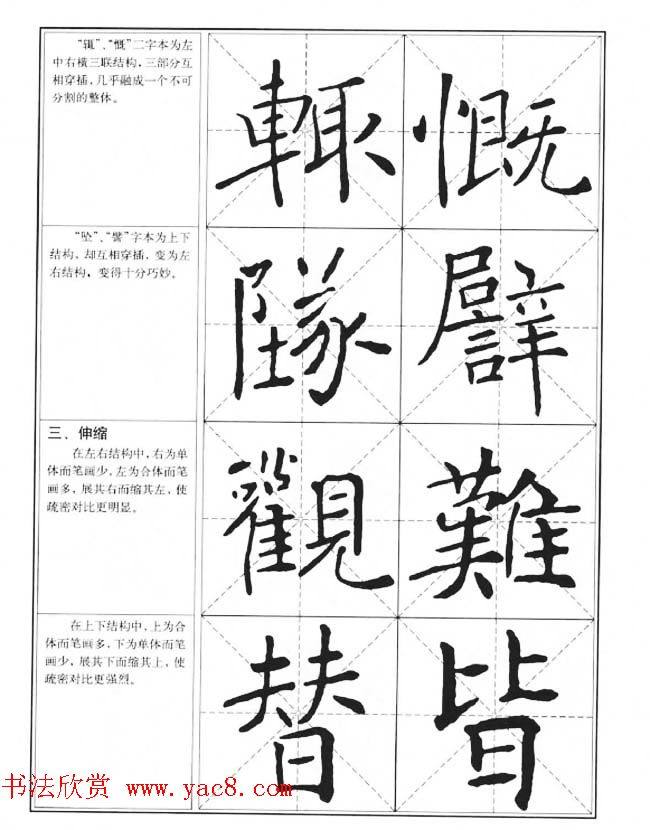 “辄”、“慨”二字本为左
中右横三联结构，三部分互
相穿插，几乎融成一个不可
分割的整体。
輒 慨
“坠”、“譬”字本为上下
结构，却互相穿插，变为左
右结构，变得十分巧妙。
墜 譬
三、伸缩
在左右结构中，右为单
体而笔画少，左为合体而笔
画多，展其右而缩其左，使
疏密对比更明显。
觀 難
在上下结构中，上为合
体而笔画多，下为单体而笔
画少，展其下而缩其上，使
疏密对比更强烈。
替 皆
书法欣赏 www.yac8.com